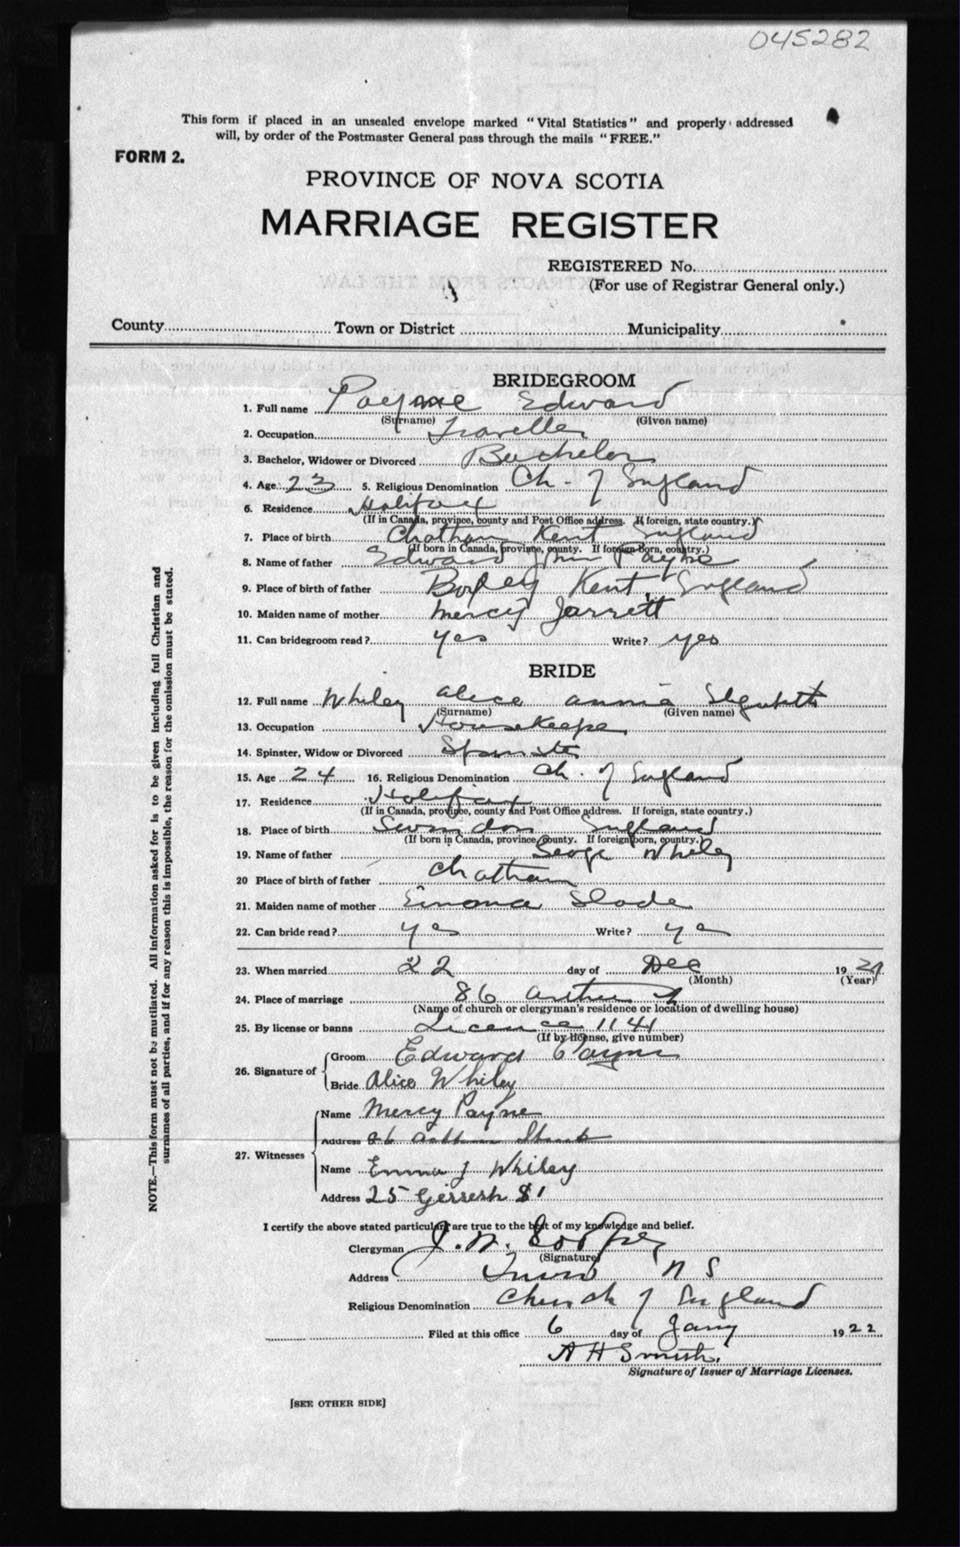 045282
This form if placed in an unsealed envelope marked "Vital Statistics" and properly addressed
will, by order of the Postmaster General pass through the mails "FREE."
FORM 2.
PROVINCE OF NOVA SCOTIA
MARRIAGE REGISTER
REGISTERED No.
(For use of Registrar General only.)
County Town or District Municipality
BRIDEGROOM
1. Full name Payne Edward
(Surname) (Given name)
2. Occupation Traveller
3. Bachelor, Widower or Divorced Bachelor
4. Age 23 5. Religious Denomination Ch. of England
6. Residence Halifax
(If in Canada, province, county and Post Office address. If foreign, state country.)
7. Place of birth Chatham Kent England
(If born in Canada, province, county. If foreign born, country.)
8. Name of father Edward Payne
9. Place of birth of father Boxley Kent, England
10. Maiden name of mother Mercy Jarrett
11. Can bridegroom read? yes Write? yes
BRIDE
12. Full name Whiley Alice Annie
(Surname) (Given name)
13. Occupation Housekeeper
14. Spinster, Widow or Divorced Spinster
15. Age 24 16. Religious Denomination Ch. of England
17. Residence Halifax
(If in Canada, province, county and Post Office address. If foreign, state country.)
18. Place of birth Swindon England
(If born in Canada, province, county. If foreign born, country.)
19. Name of father George Whiley
20 Place of birth of father Chatham
21. Maiden name of mother Slade
22. Can bride read? yes Write? yes
23. When married 22 day of Dec 1921
(Month) (Year)
24. Place of marriage 86
(Name of church or clergyman's residence or location of dwelling house)
25. By license or banns Licence 1141
(If by license, give number)
26. Signature of Groom Edward Payne
Bride Alice Whiley
27. Witnesses Name Mercy Payne
Address 86 Street
Name Emma J Whiley
Address 25 St
I certify the above stated particulars are true to the best of my knowledge and belief.
Clergyman J. W. Godfrey
(Signature)
Address Truro N S
Religious Denomination Church of England
Filed at this office 6 day of Jany 1922
A H Smith
Signature of Issuer of Marriage Licenses.
[SEE OTHER SIDE]
NOTE.—This form must not be mutilated. All information asked for is to be given including full Christian and
surnames of all parties, and if for any reason this is impossible, the reason for the omission must be stated.